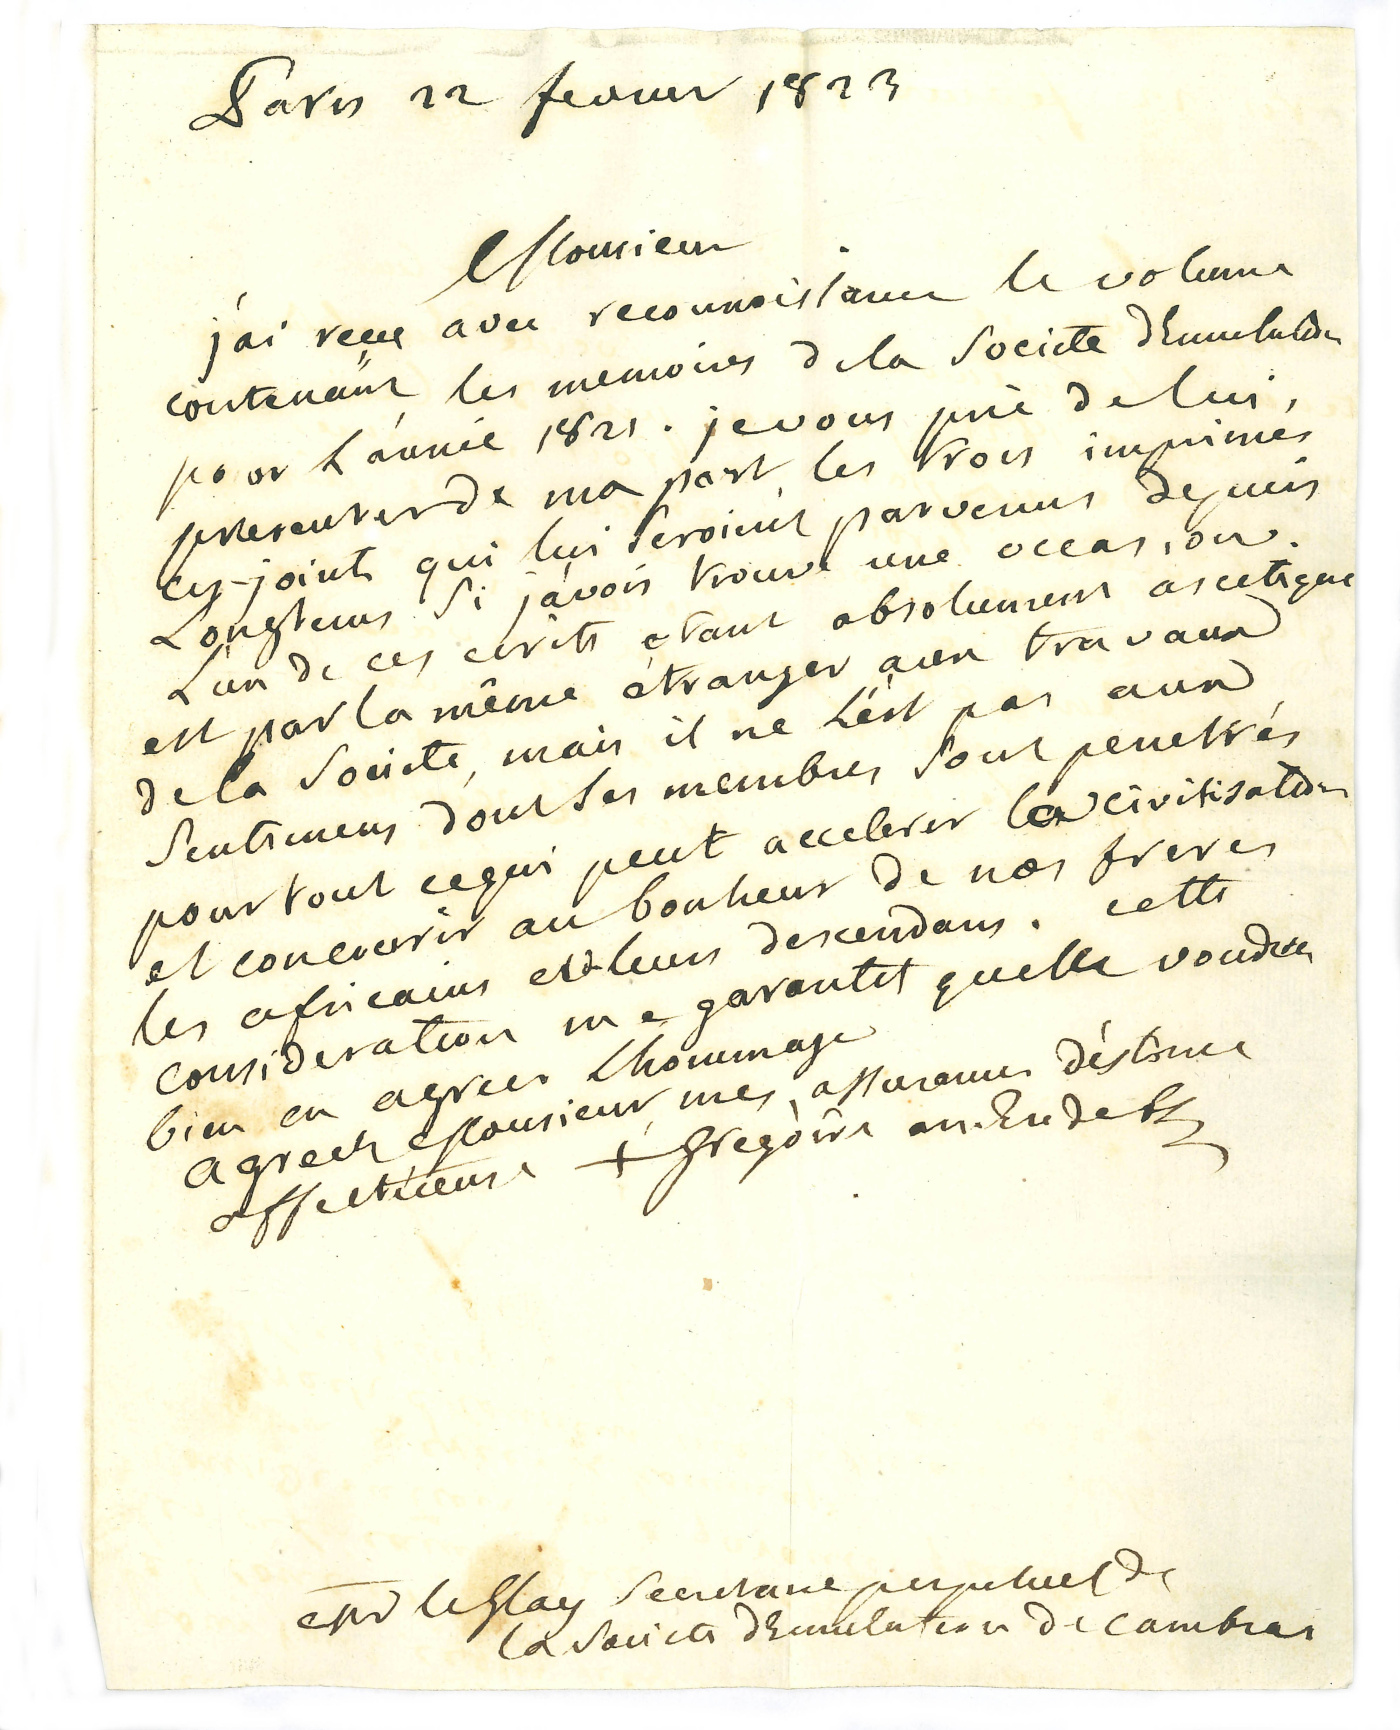 Paris 22 fevrier 1823
Monsieur
j'ai reçu avec reconnoissance le volume
contenant les memoires de la Societe d'Emulation
pour L'année 1821. je vous prie de lui
presenter de ma part les trois imprimés
cy-joints qui lui seroient parvenus depuis
Longtems si j'avois trouvé une occasion.
L'un de ces ecrits étant absolument ascetique
est par la même étranger aux travaux
de la Societe, mais il ne L'est pas aux
Sentimens dont Ses membres Sont penetrés
pour tout ce qui peut accelerer la civilisation
et concourir au bonheur de nos freres
les africains et leurs descendans. cette
consideration me garantit quelle voudra
bien en agreer L'hommage
agreez Monsieur, mes assurances d'éstime
affectueuse + Gregòire an. Ev. de Bl
Mr le Glay Secretaire perpetuel de
la Societe d'Emulation de Cambrai